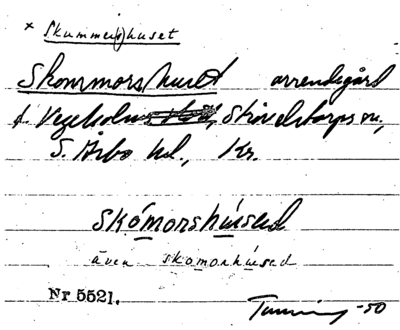 × Skumme(r)huset
Skommorshuset arrendegård
f. Vegeholm, Strövelstorps sn.,
S. Åsbo hd., Kr.
skómorshúsed
även skomorhúsed
Nr 5521.
-50